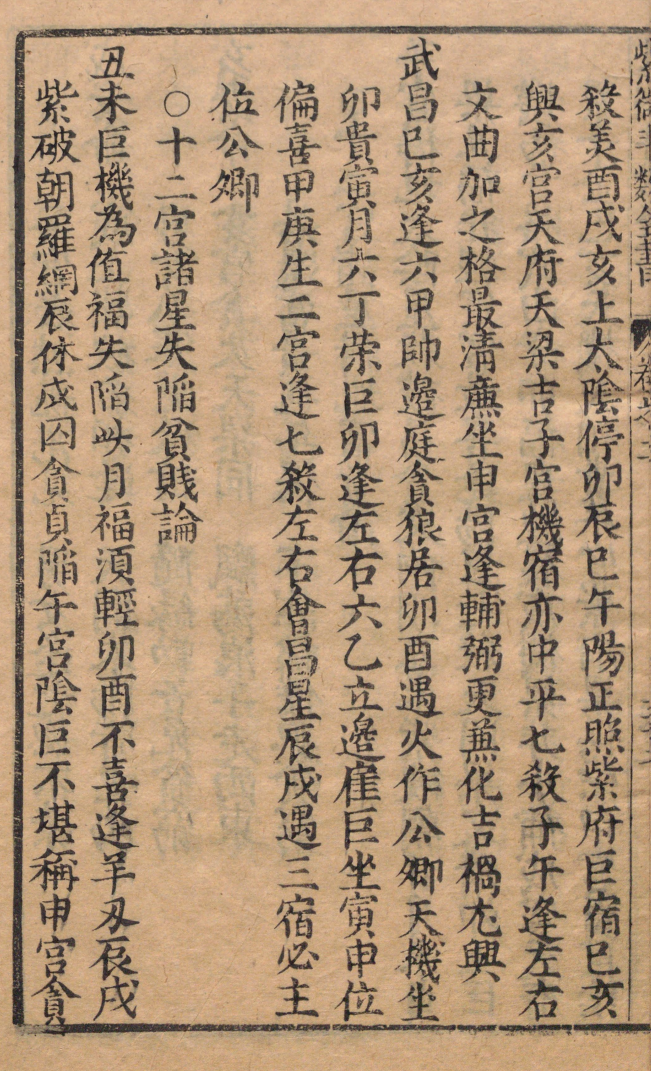 紫微斗數全書 卷之二
殺美酉戌亥上大陰停卯辰巳午陽正照紫府巨宿巳亥
興亥宮天府天梁吉子宮機宿亦中平七殺子午逢左右
文曲加之格最清廉坐申宮逢輔弼更兼化吉福尤興
武昌巳亥逢六甲帥邊庭貪狼居卯酉遇火作公卿天機坐
卯貴寅月六丁榮巨卯逢左右六乙立邊疆巨坐寅申位
偏喜甲庚生二宮逢七殺左右會昌星辰戌遇三宿必主
位公卿
○十二宮諸星失陷貧賤論
丑未巨機為值福失陷此月福須輕卯酉不喜逢羊刃辰戌
紫破朝羅網辰休戌囚貪貞陷午宮陰巨不堪稱申宮貪